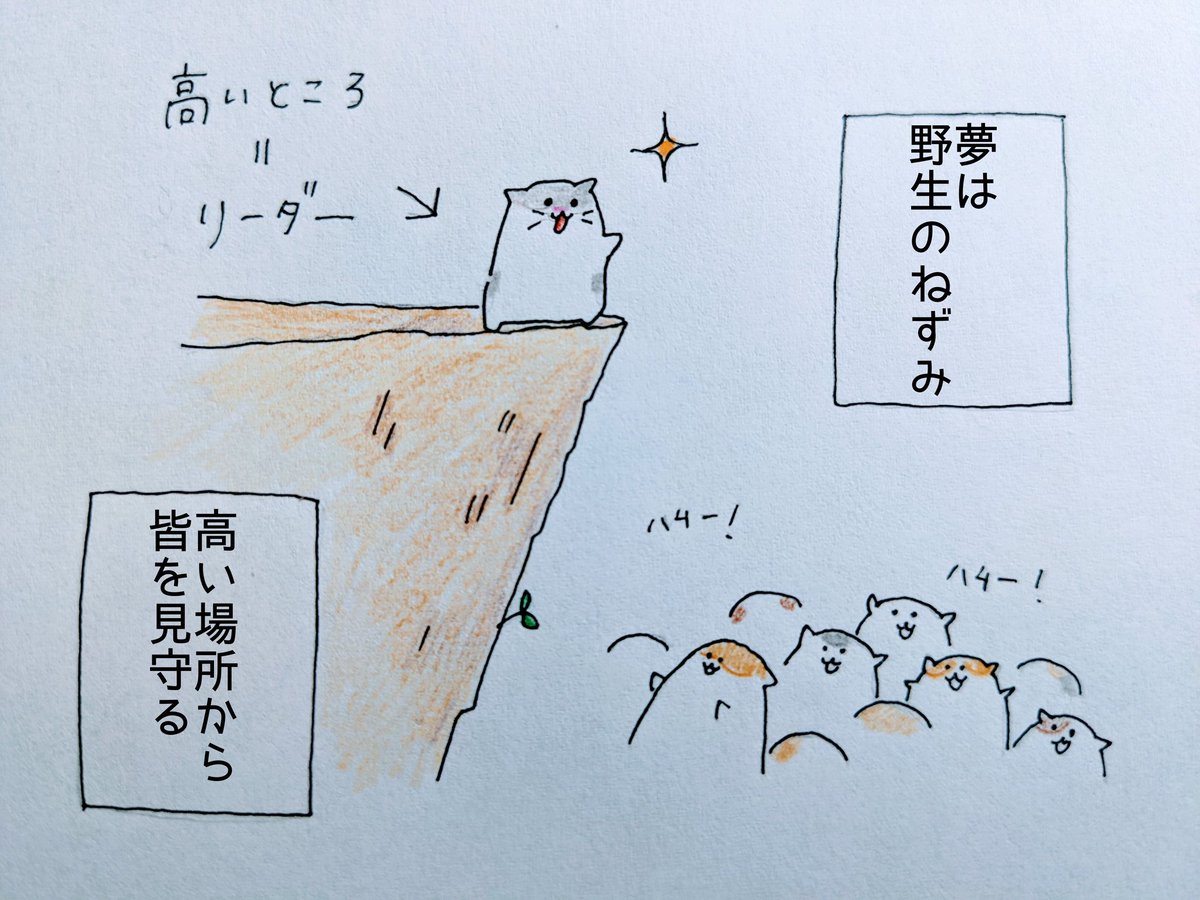 夢は
野生のねずみ
高いところ
||
リーダー
高い場所から
皆を見守る